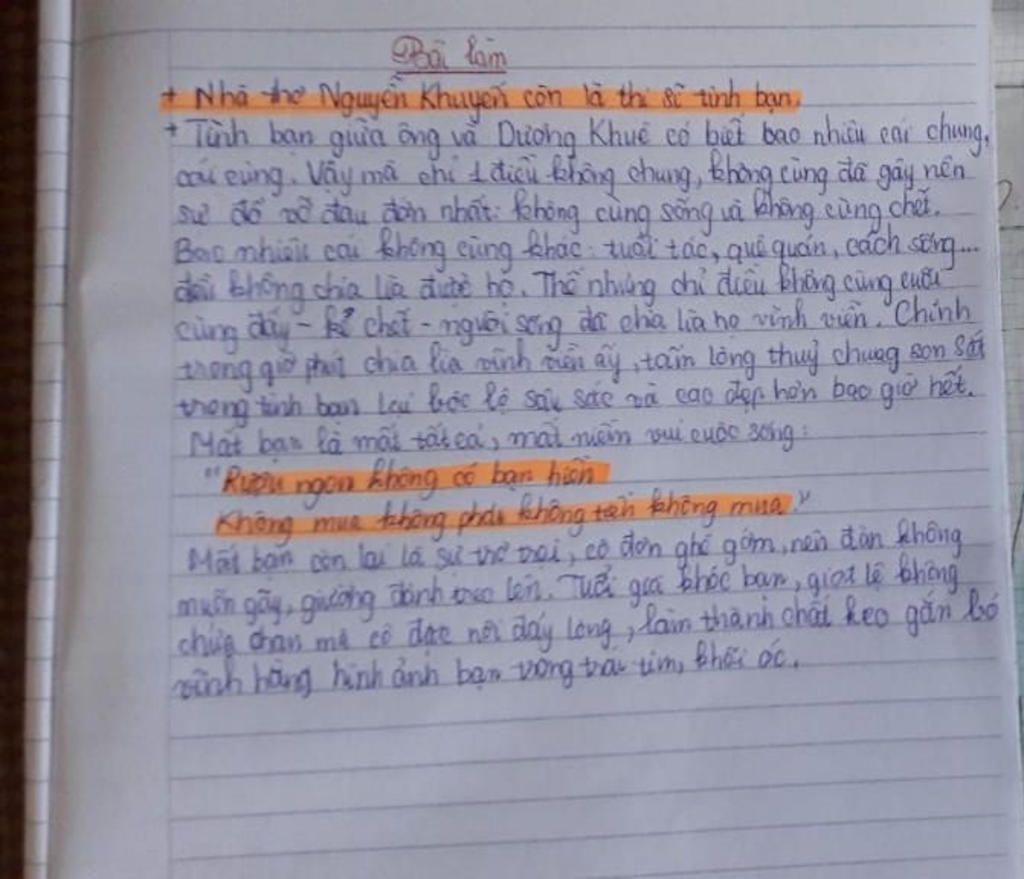 Bài làm
+ Nhà thơ Nguyễn Khuyến còn là thi sĩ tình bạn.
+ Tình bạn giữa ông và Dương Khuê có biết bao nhiêu cái chung,
cái cùng. Vậy mà chỉ 1 điều không chung, không cùng đã gây nên
sự đổ vỡ đau đớn nhất: không cùng sống và không cùng chết.
Bao nhiêu cái không cùng khác: tuổi tác, quê quán, cách sống...
đều không chia lìa được họ. Thế nhưng chỉ điều không cùng cuối
cùng đấy - kẻ chết - người sống đã chia lìa họ vĩnh viễn. Chính
trong giờ phút chia lìa vĩnh viễn ấy, tấm lòng thuỷ chung son sắt
trong tình bạn lại bộc lộ sâu sắc và cao đẹp hơn bao giờ hết.
Mất bạn là mất tất cả, mất niềm vui cuộc sống:
"Rượu ngon không có bạn hiền
Không mua không phải không tiền không mua."
Mất bạn còn lại là sự trơ trọi, cô đơn ghê gớm, nên đàn không
muốn gẩy, giường đành treo lên. Tuổi già khóc bạn, giọt lệ không
chứa chan mà cô đặc nơi đáy lòng, làm thành chất keo gắn bó
vĩnh hằng hình ảnh bạn trong trái tim, khối óc.